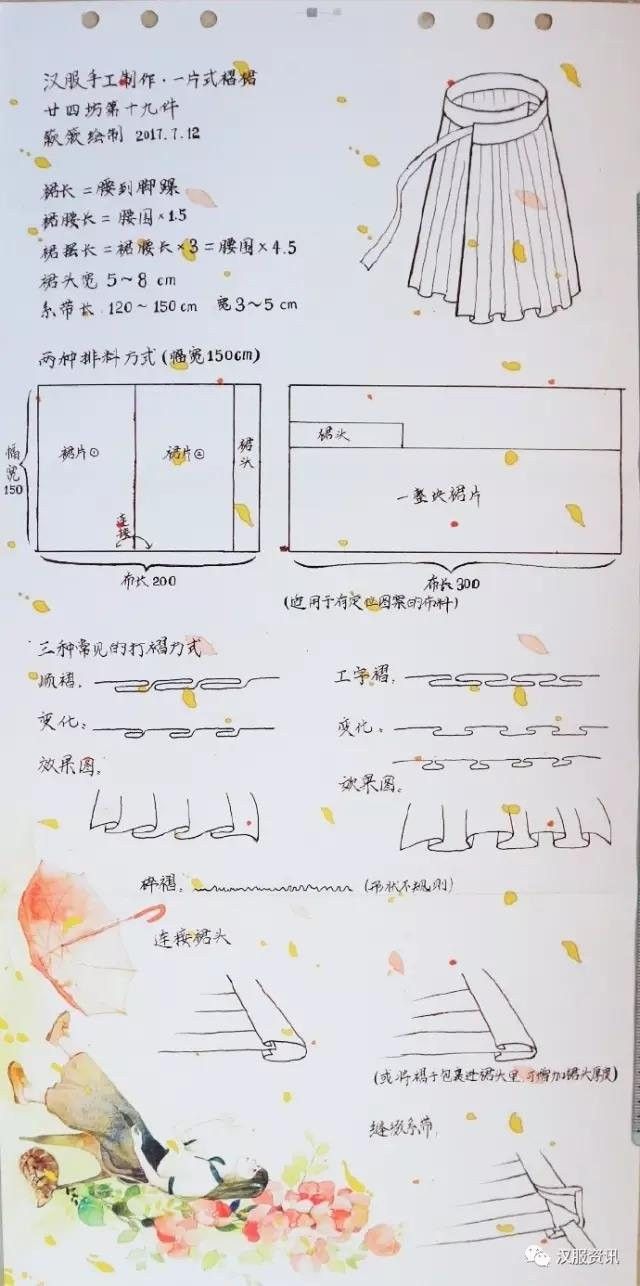 汉服手工制作·一片式褶裙
廿四坊第十九件
蔌蔌绘制 2017.7.12
裙长=腰到脚踝
裙腰长=腰围×1.5
裙摆长=裙腰长×3=腰围×4.5
裙头宽 5~8 cm
系带长 120~150cm 宽3~5cm
两种排料方式(幅宽150cm)
幅宽150
裙片①
裙片②
裙头
连接
布长200
裙头
一整块裙片
布长300
(适用于有定位图案的布料)
三种常见的打褶方式
顺褶:
变化:
效果图:
工字褶:
变化:
效果图:
碎褶: (形状不规则)
连接裙头
(或将褶子包裹进裙头里,可增加裙头厚度)
缝缀系带
汉服资讯